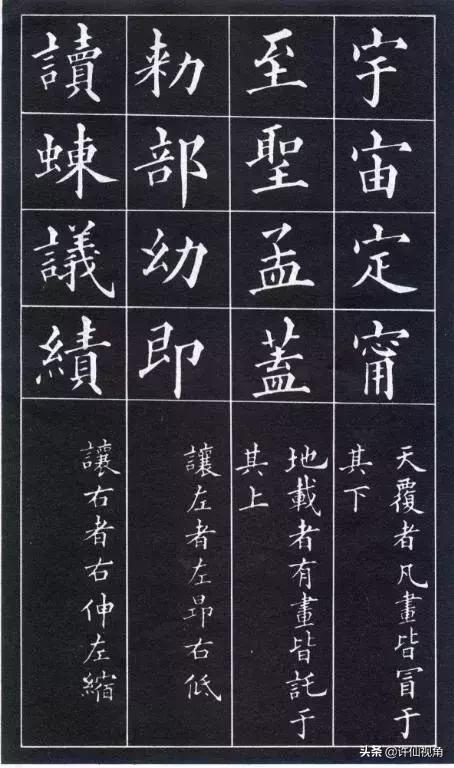 宇宙定甯
天覆者凡畫皆冒于
其下
至聖孟蓋
地載者有畫皆託于
其上
勅部幼即
讓左者左昂右低
讀蝀議績
讓右者右伸左縮
头条 @许仙视角